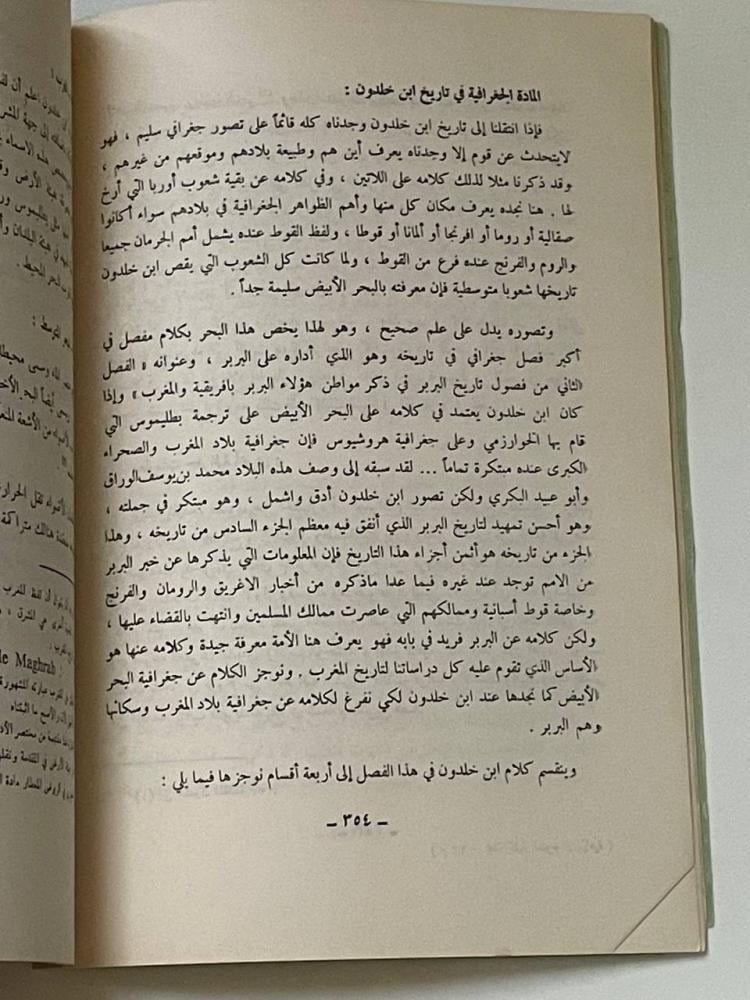 المادة الجغرافية في تاريخ ابن خلدون :
فإذا انتقلنا إلى تاريخ ابن خلدون وجدناه كله قائماً على تصور جغرافي سليم ، فهو
لايتحدث عن قوم إلا وجدناه يعرف أين هم وطبيعة بلادهم وموقعهم من غيرهم ،
وقد ذكرنا مثلا لذلك كلامه على اللاتين ، وفي كلامه عن بقية شعوب أوربا التي أرخ
لها . هنا نجده يعرف مكان كل منها وأهم الظواهر الجغرافية في بلادهم سواء أكانوا
صقالبة أو روما أو افرنجا أو ألمانا أو قوطا ، ولفظ القوط عنده يشمل أمم الجرمان جميعا
والروم والفرنج عنده فرع من القوط ، ولما كانت كل الشعوب التي يقص ابن خلدون
تاريخها شعوبا متوسطية فإن معرفته بالبحر الأبيض سليمة جداً .
وتصوره يدل على علم صحيح ، وهو لهذا يخص هذا البحر بكلام مفصل في
أكبر فصل جغرافي في تاريخه وهو الذي أداره على البربر ، وعنوانه « الفصل
الثاني من فصول تاريخ البربر في ذكر مواطن هؤلاء البربر بافريقية والمغرب» وإذا
كان ابن خلدون يعتمد في كلامه على البحر الأبيض على ترجمة بطليموس التي
قام بها الخوارزمي وعلى جغرافية هروشيوس فإن جغرافية بلاد المغرب والصحراء
الكبرى عنده مبتكرة تماماً ... لقد سبقه إلى وصف هذه البلاد محمد بن يوسف الوراق
وأبو عبيد البكري ولكن تصور ابن خلدون أدق واشمل ، وهو مبتكر في جملته ،
وهو أحسن تمهيد لتاريخ البربر الذي أنفق فيه معظم الجزء السادس من تاريخه ، وهذا
الجزء من تاريخه هو أثمن أجزاء هذا التاريخ فإن المعلومات التي يذكرها عن خبر البربر
من الامم توجد عند غيره فيما عدا ماذكره من أخبار الاغريق والرومان والفرنج
وخاصة قوط أسبانية وممالكهم التي عاصرت ممالك المسلمين وانتهت بالقضاء عليها ،
ولكن كلامه عن البربر فريد في بابه فهو يعرف هنا الأمة معرفة جيدة وكلامه عنها هو
الأساس الذي تقوم عليه كل دراساتنا لتاريخ المغرب . ونوجز الكلام عن جغرافية البحر
الأبيض كما نجدها عند ابن خلدون لكي نفرغ لكلامه عن جغرافية بلاد المغرب وسكانها
وهم البربر .
وينقسم كلام ابن خلدون في هذا الفصل إلى أربعة أقسام نوجزها فيما يلي :
– ٣٥٤ –